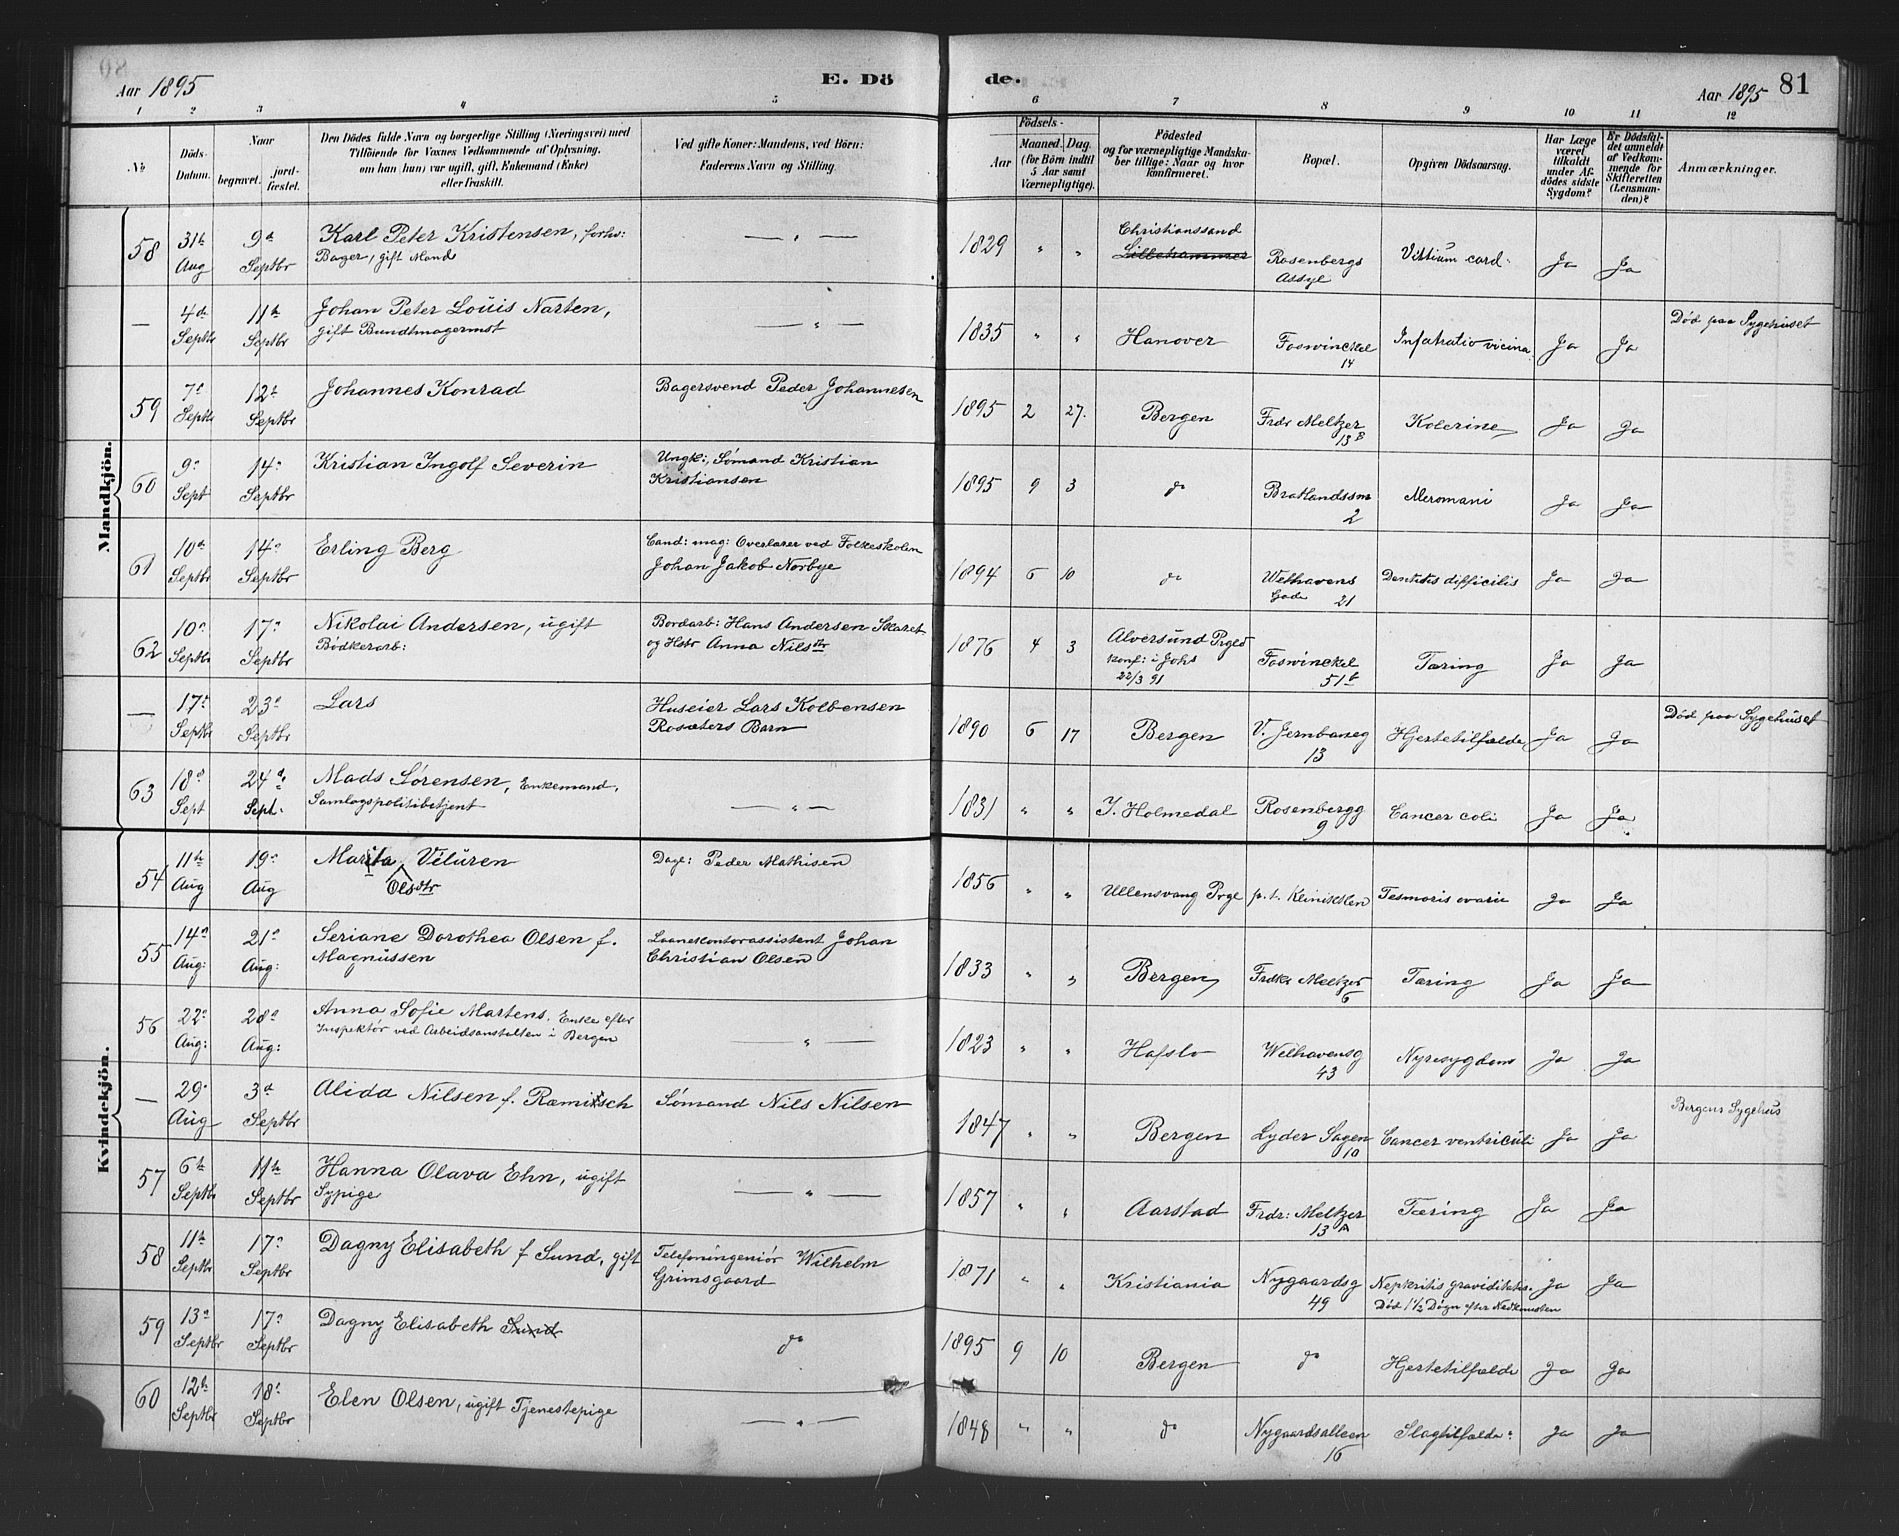 Aar 1895
E. Dö
de.
Aar 1895
81
1 2 3 4 5 6 7 8 9 10 11 12
No
Döds-Datum.
Naar
begravet.
jordfæstet.
Den Dödes fulde Navn og borgerlige Stilling (Næringsvei) med
Tilföiende for Voxnes Vedkommende af Oplysning.
om han (hun) var ugift, gift, Enkemand (Enke)
eller fraskilt.
Ved gifte Koner: Mandens, ved Börn:
Faderens Navn og Stilling.
Födsels-
Aar
Maaned. Dag.
(for Börn indtil
5 Aar samt
Værnepligtige).
Födested
og for værnepligtige Mandska-
ber tillige: Naar og hvor
konfirmeret.
Bopæl.
Opgiven Dödsaarsag.
Har Læge
været
tilkaldt
under Af-
dödes sidste
Sygdom?
Er Dödsfal-
det anmeldt
af Vedkom-
mende for
Skifteretten
(Lensman-
den)?
Anmærkninger.
Mandkjön.
58 31te Aug 9de Septbr Karl Peter Kristensen, forhv: Bager, gift Mand — " — 1829 " " Christianssand Lillehammer Rosenbergs Assyl Vittium cord. Ja Ja
— 4de Septbr 11te Septbr Johan Peter Louis Narten, gift Bundtmagermst — " — 1835 " " Hanover Foswinckel 14 Infatratio vicina Ja Ja Död paa Sygehuset
59 7de Septbr 12te Septbr Johannes Konrad Bagersvend Peder Johannesen 1895 2 27. Bergen Frdr Meltzer 13 B Kolerine Ja Ja
60 9de Sept 14de Septbr Kristian Ingolf Severin Ungk:, Sømand Kristian Kristiansen 1895 9 3 do Bratlandssm 2 Meromani Ja Ja
61 10de Septbr 14de Septbr Erling Berg Cand: mag: Overlærer ved Folkeskolen Johan Jakob Norbye 1894 6 10 do Welhavens Gade 21 Dentitis difficilis Ja Ja
62 10de Septbr 17de Septbr Nikolai Andersen, ugift Bødkerarb: Bordarb: Hans Andersen Skaret og Hstr Anna Nilsdtr 1876 4 3 Alversund Prgld konf: i Johs 22/3 91 Foswinckel 51 b Tæring Ja Ja
— 17de Septbr 23de Septbr Lars Huseier Lars Kolbensen Rosæters Barn 1890 6 17 Bergen V. Jernbaneg 13 Hjertetilfælde Ja Ja Död paa Sygehuset
63 18de Sept 24de Sept. Mads Sørensen, Enkemand, Samlagspolitibetjent — " — 1831 " " I. Holmedal Rosenbergg 9 Cancer coli Ja Ja
Kvindekjön.
54 11te Aug 19de Aug Marita Olsdtr Vilüren Dagl: Peder Mathisen 1856 " " Ullensvang Prgl p.t. Kliniken Tesmoris ovarii Ja Ja
55 14de Aug: 21de Aug: Seriane Dorothea Olsen f. Magnüssen Laanekontorassistent Johan Christian Olsen 1833 " " Bergen Frdkr Meltzer 6 Tæring Ja Ja
56 22de Aug: 28de Aug: Anna Sofie Martens. Enke efter Inspektør ved Arbeidsanstalten i Bergen — " — 1823 " " Hafslo Welhavensg 43 Nyresygdom Ja Ja
— 29de Aug 3de Septbr Alida Nilsen f. Ræmisch Sømand Nils Nilsen 1847 " " Bergen Lyder Sagen 10 Cancer ventriculi Ja Ja Bergens Sygehus
57 6te Septbr 11te Septbr Hanna Olava Ehn, ugift Sypige — " — 1857 " " Aarstad Frdr: Meltzer 13 A Tæring Ja Ja
58 11te Septbr 17de Septbr Dagny Elisabeth f Sund, gift Telefoningeniør Wilhelm Grimsgaard 1871 " " Kristiania Nygaardsg 49 Nephritis graviditatis. Död 1½ Døgn efter Nedkomsten Ja Ja
59 13de Septbr 17de Septbr Dagny Elisabeth Sund do 1895 9 10 Bergen do Hjertetilfælde Ja Ja
60 12te Septbr 18de Septbr Elen Olsen, ugift Tjenestepige — " — 1848 " " do Nygaardsalleen 16 Slagtilfælde Ja Ja